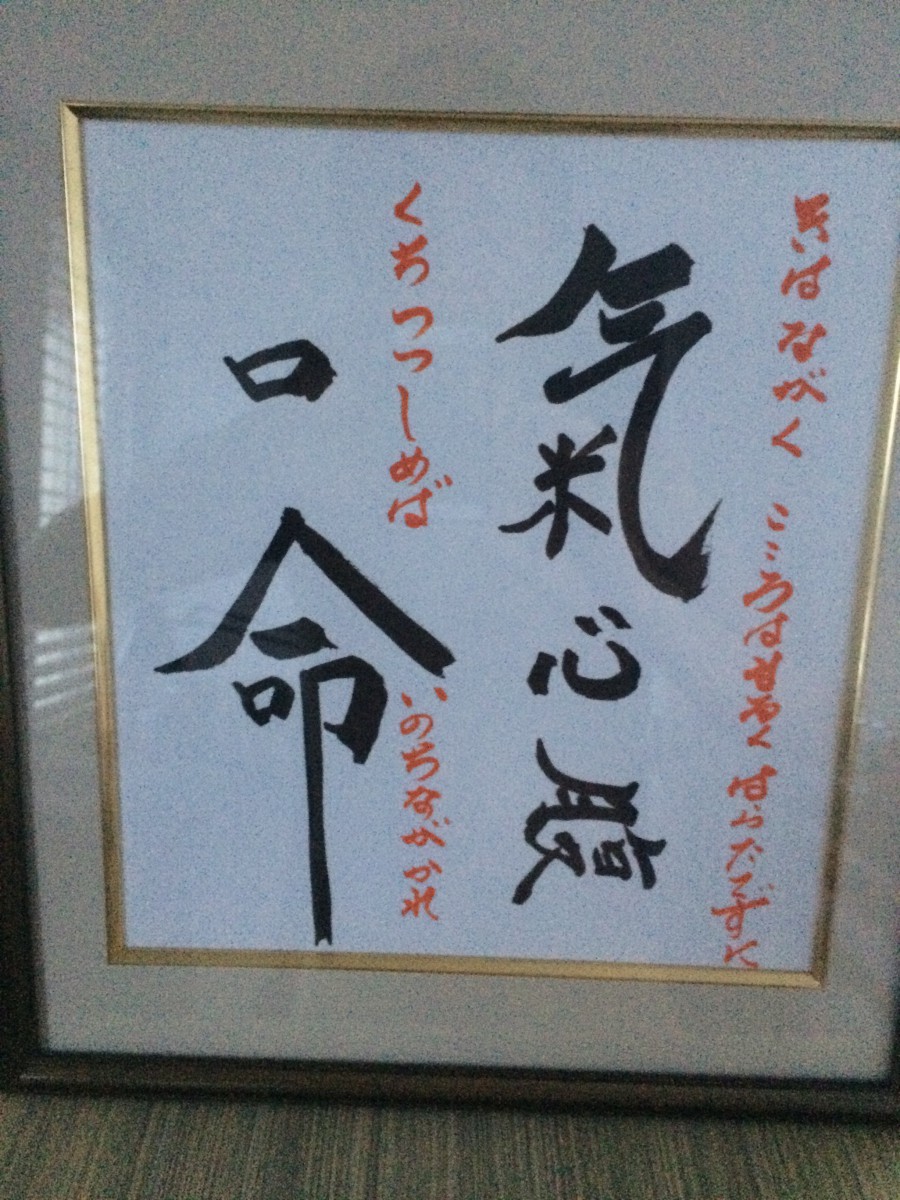 気はながく こころはまるく はらたてずに
氣心腹
くちつつしめば いのちながかれ
口命